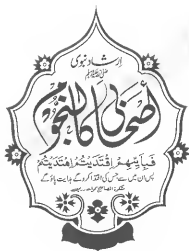 ارشادِ نبوی
صلی اللہ علیہ وسلم
أَصْحَابِي كَالنُّجُومِ
فَبِأَيِّهِمُ اقْتَدَيْتُمُ اهْتَدَيْتُمْ
پس ان میں سے جس کی اقتدا کرو گے ہدایت پاؤ گے